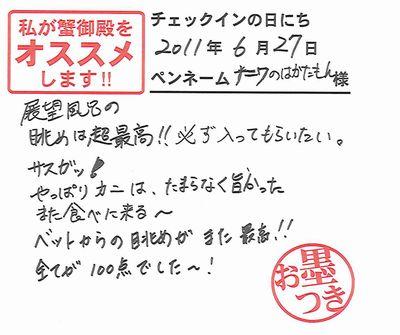 私が蟹御殿を
オススメ
します!!
チェックインの日にち
2011年 6月 27日
ペンネーム ナニワのはかたもん様
展望風呂の
眺めは超最高!! 必ず入ってもらいたい。
サスガッ!
やっぱりカニは、たまらなく旨かった
また食べに来る〜
ベットからの眺めが また 最高!!
全てが 100点でした〜!
お墨つき